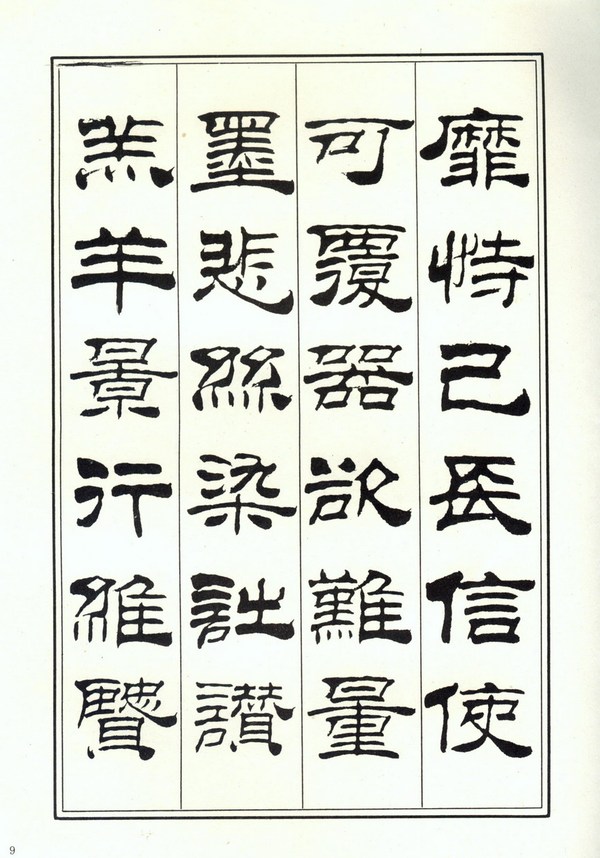 靡恃己長信使
可覆器欲難量
墨悲絲染詩讚
羔羊景行維賢
9